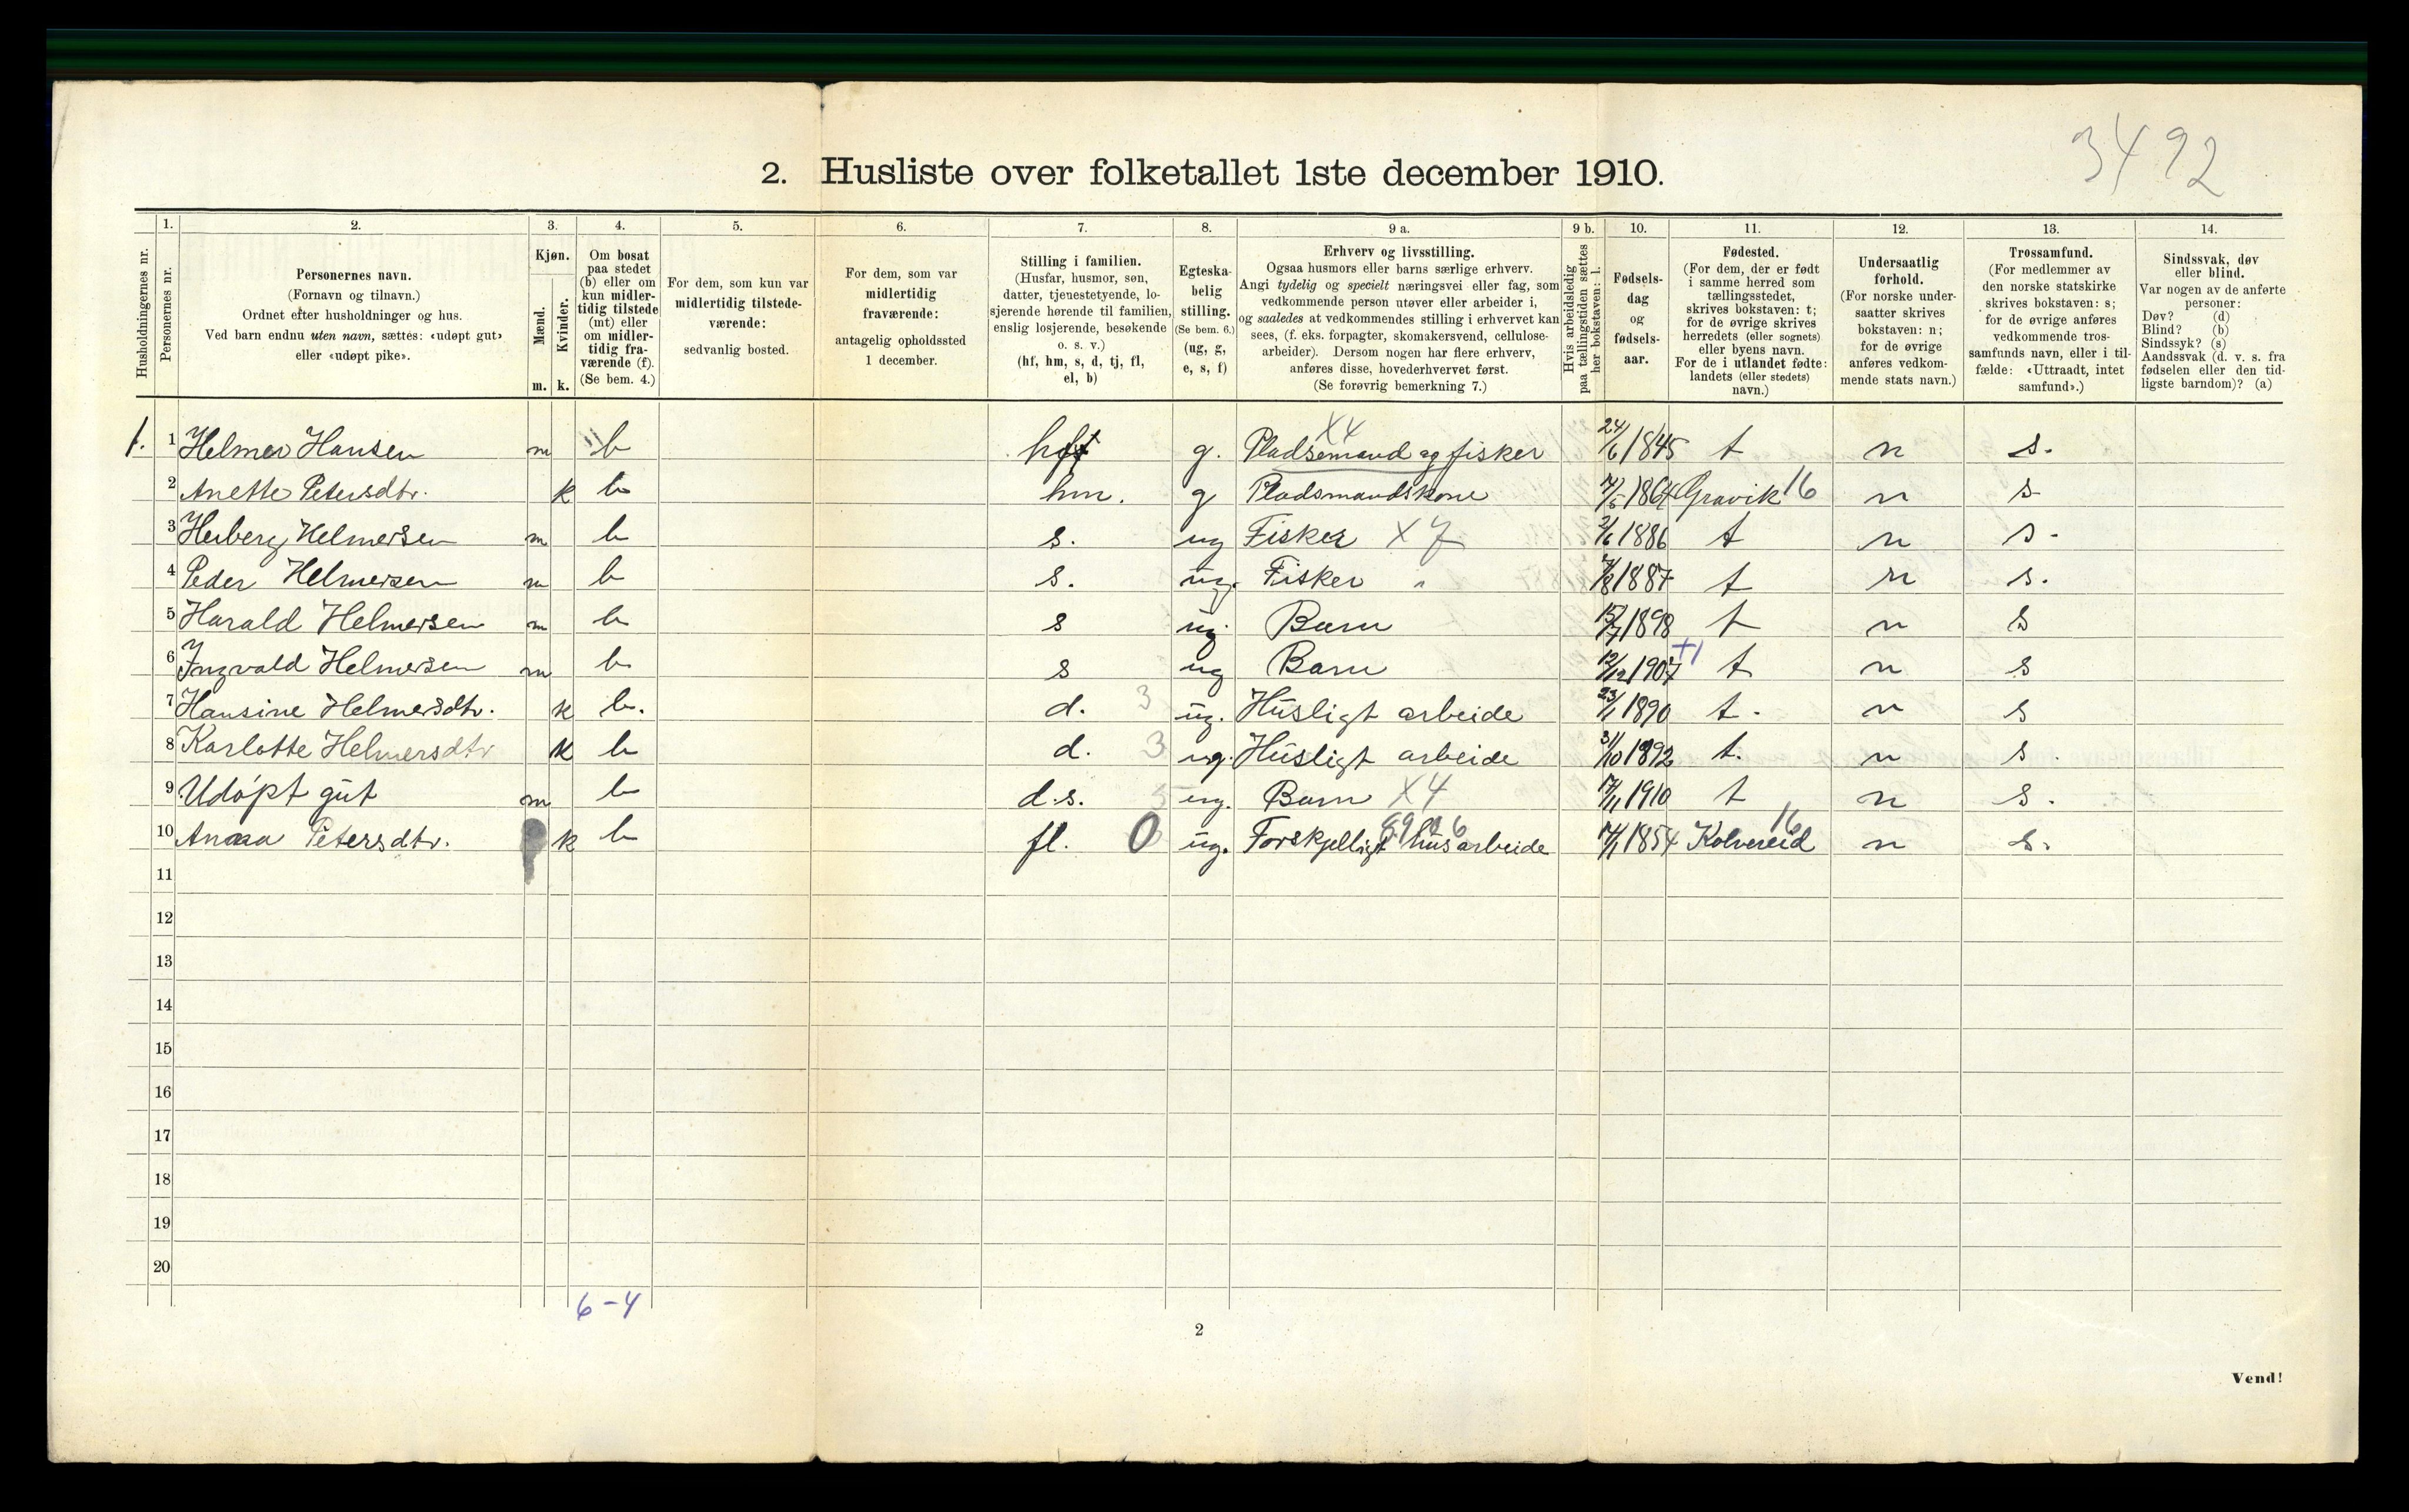 3492
2. Husliste over folketallet 1ste december 1910.
Husholdningernes nr.
1.
Personernes nr.
2.
Personernes navn.
(Fornavn og tilnavn.)
Ordnet efter husholdninger og hus.
Ved barn endnu uten navn, sættes: «udøpt gut»
eller «udøpt pike».
3.
Kjøn.
Mænd.
Kvinder.
m. k.
4.
Om bosat
paa stedet
(b) eller om
kun midler-
tidig tilstede
(mt) eller
om midler-
tidig fra-
værende (f).
(Se bem. 4.)
5.
For dem, som kun var
midlertidig tilstede-
værende:
sedvanlig bosted.
6.
For dem, som var
midlertidig
fraværende:
antagelig opholdssted
1 december.
7.
Stilling i familien.
(Husfar, husmor, søn,
datter, tjenestetyende, lo-
sjerende hørende til familien,
enslig losjerende, besøkende
o. s. v.)
(hf, hm, s, d, tj, fl,
el, b)
8.
Egteska-
belig
stilling.
(Se bem. 6.)
(ug, g,
e, s, f)
9 a.
Erhverv og livsstilling.
Ogsaa husmors eller barns særlige erhverv.
Angi tydelig og specielt næringsvei eller fag, som
vedkommende person utøver eller arbeider i,
og saaledes at vedkommendes stilling i erhvervet kan
sees, (f. eks. forpagter, skomakersvend, cellulose-
arbeider). Dersom nogen har flere erhverv,
anføres disse, hovederhvervet først.
(Se forøvrig bemerkning 7.)
9 b.
Hvis arbeidsledig
paa tællingstiden sættes
her bokstaven: l.
10.
Fødsels-
dag
og
fødsels-
aar.
11.
Fødested.
(For dem, der er født
i samme herred som
tællingsstedet,
skrives bokstaven: t;
for de øvrige skrives
herredets (eller sognets)
eller byens navn.
For de i utlandet fødte:
landets (eller stedets)
navn.)
12.
Undersaatlig
forhold.
(For norske under-
saatter skrives
bokstaven: n;
for de øvrige
anføres vedkom-
mende stats navn.)
13.
Trossamfund.
(For medlemmer av
den norske statskirke
skrives bokstaven: s;
for de øvrige anføres
vedkommende tros-
samfunds navn, eller i til-
fælde: «Uttraadt, intet
samfund».)
14.
Sindssvak, døv
eller blind.
Var nogen av de anførte
personer:
Døv? (d)
Blind? (b)
Sindssyk? (s)
Aandssvak (d. v. s. fra
fødselen eller den tid-
ligste barndom)? (a)
X4
1. 1 Helmer Hansen m b hf g. Pladsemand og fisker 24/6 1845 t n s.
2 Anette Petersdtr. k b hm. g Pladsmandskone 1864 Gravik 16 n s
3 Herberg Helmersen m b s. ug Fisker X7 2/6 1886 t n s.
4 Peder Helmersen m b s. ug. Fisker " 7/8 1887 t n s.
5 Harald Helmersen m b s ug. Barn 15/7 1898 t n s
+1
6 Ingvald Helmersen m b s ug Barn 12/12 1907 t n s
7 Hansine Helmersdtr. k b. d. 3 ug. Husligt arbeide 23/1 1890 t. n s
8 Karlotte Helmersdtr k b d. 3 ug. Husligt arbeide 31/10 1892 t. n s.
9 Udøpt gut m b d.s. 5 ug. Barn X4 17/11 1910 t n s.
10 Anna Petersdtr. k b fl. 0 ug. Forskjelligt husarbeide 14/1 1854 Kolvereid 16 n s.
11
12
13
14
15
16
17
18
19
20
6-4
2
Vend!